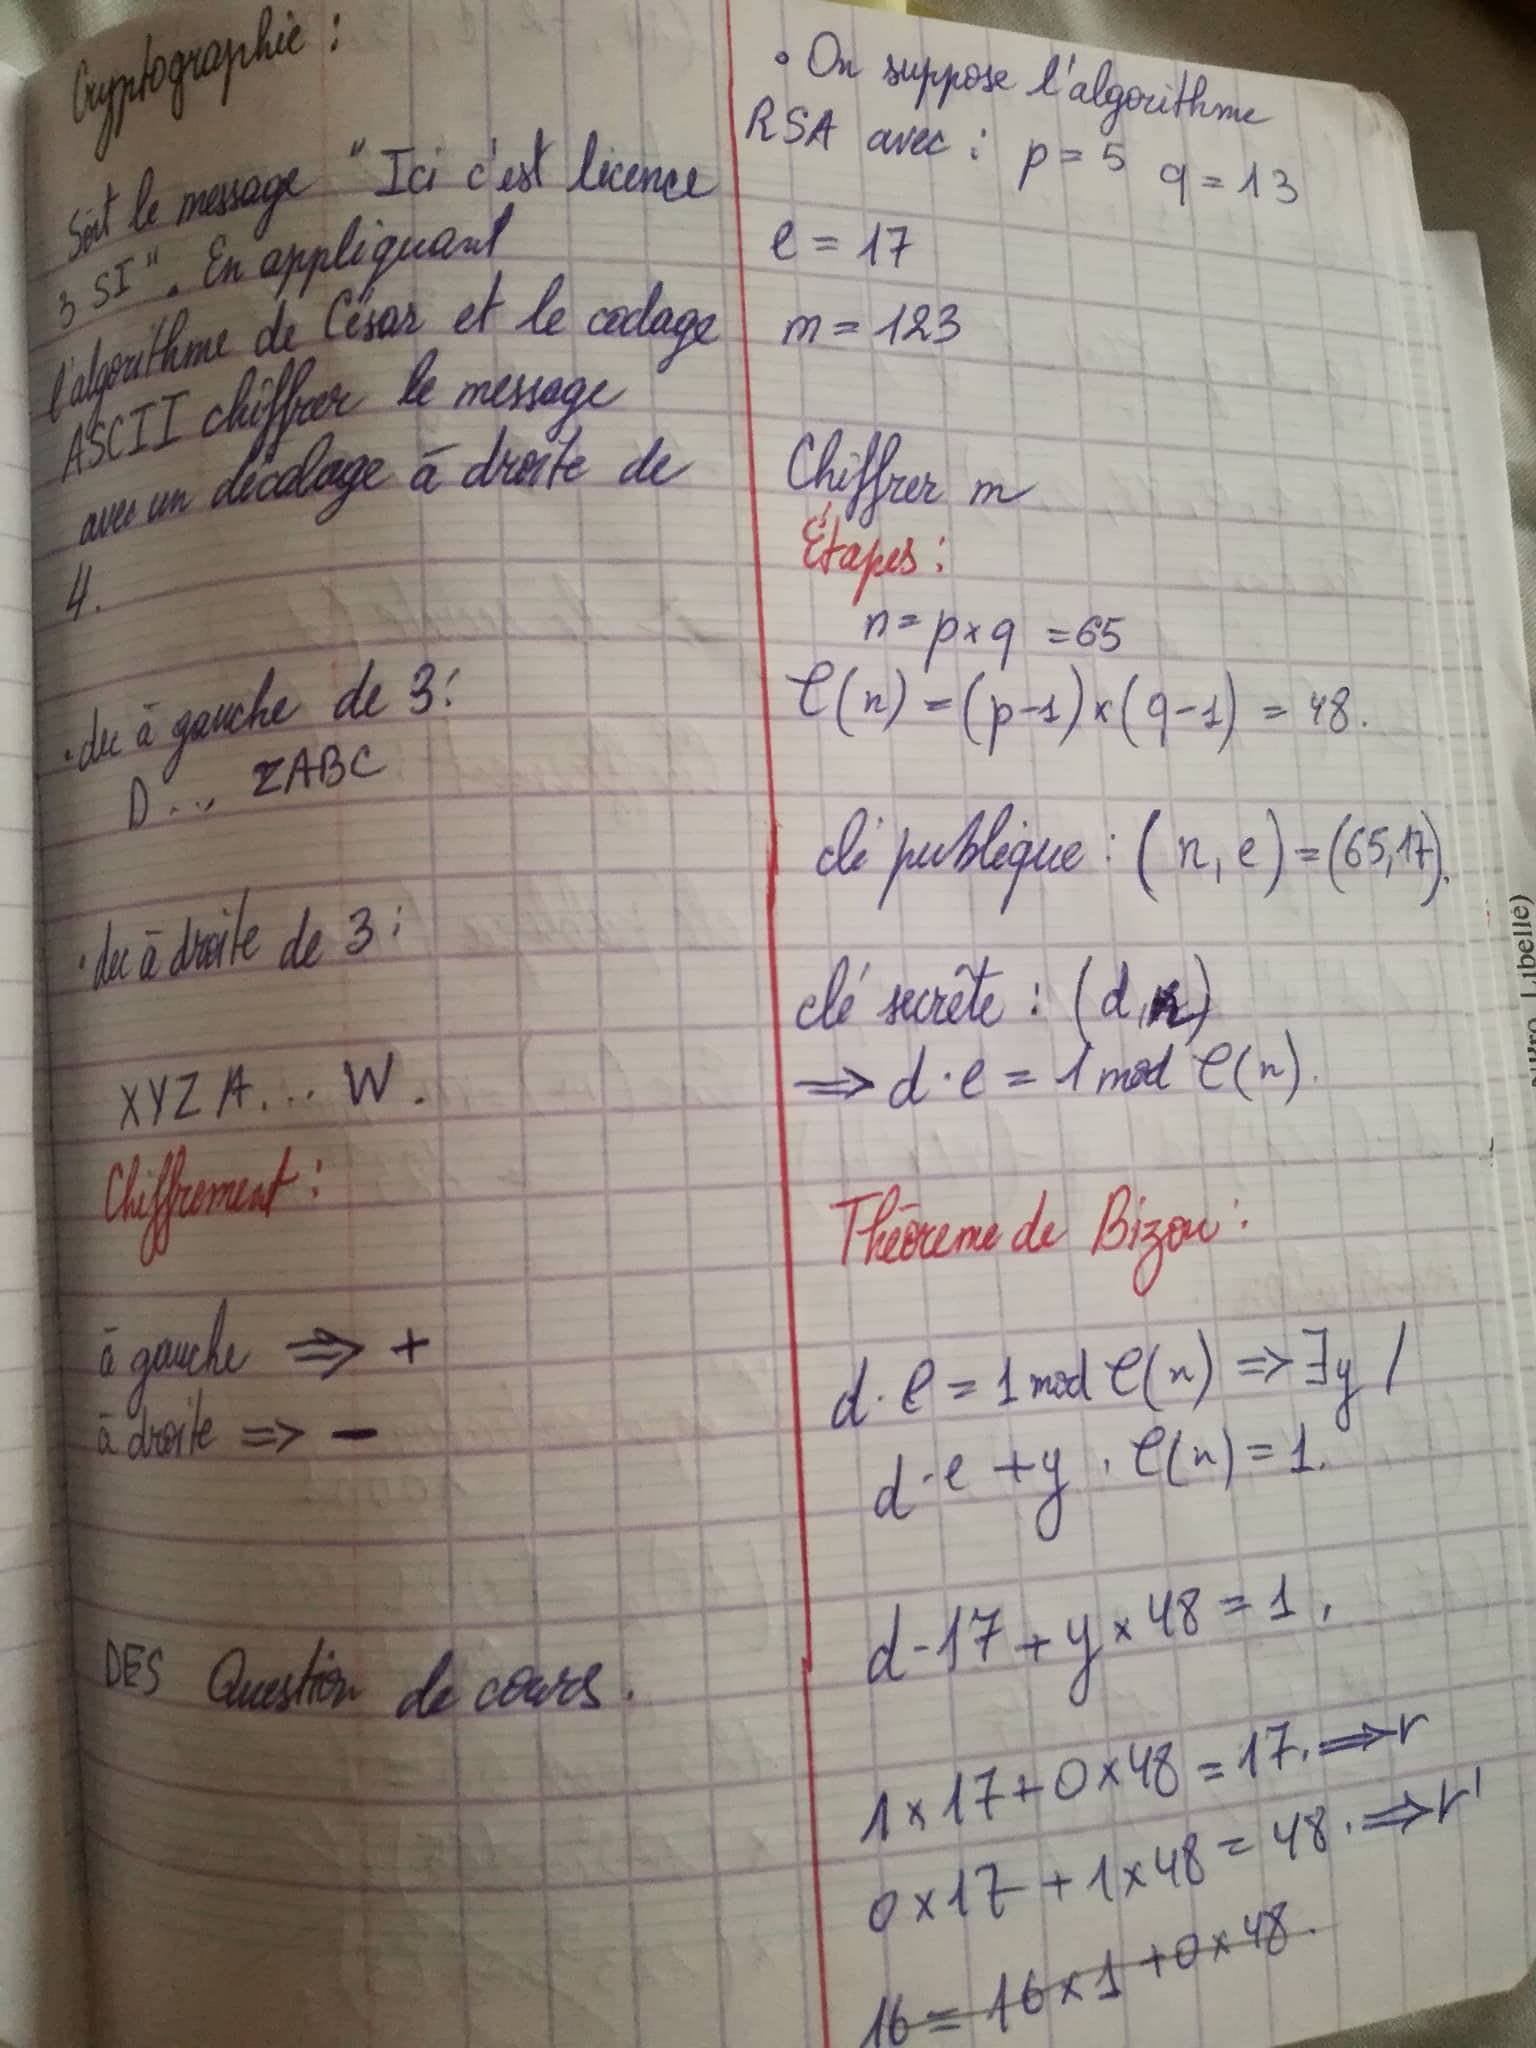 Cryptographie :
Soit le message "Ici c'est licence
3 SI". En appliquant
l'algorithme de César et le codage
ASCII chiffrer le message
avec un décalage à droite de
4.
. dec à gauche de 3 :
D ... ZABC
. dec à droite de 3 :
XYZ A... W.
Chiffrement :
à gauche ⇒ +
à droite ⇒ -
DES Question de cours.
• On suppose l'algorithme
RSA avec : p = 5 q = 13
e = 17
m = 123
Chiffrer m
Étapes :
n = p x q = 65
φ(n) = (p-1) x (q-1) = 48.
clé publique : (n, e) = (65,17).
clé secrète : (d, n)
⇒ d . e = 1 mod φ(n).
Théoreme de Bizou :
d . e = 1 mod φ(n) ⇒ ∃y /
d . e + y . φ(n) = 1.
d - 17 + y x 48 = 1.
1 x 17 + 0 x 48 = 17. ⇒ r
0 x 17 + 1 x 48 = 48. ⇒ r'
16 = 16 x 1 + 0 x 48.
ouro Libellé)